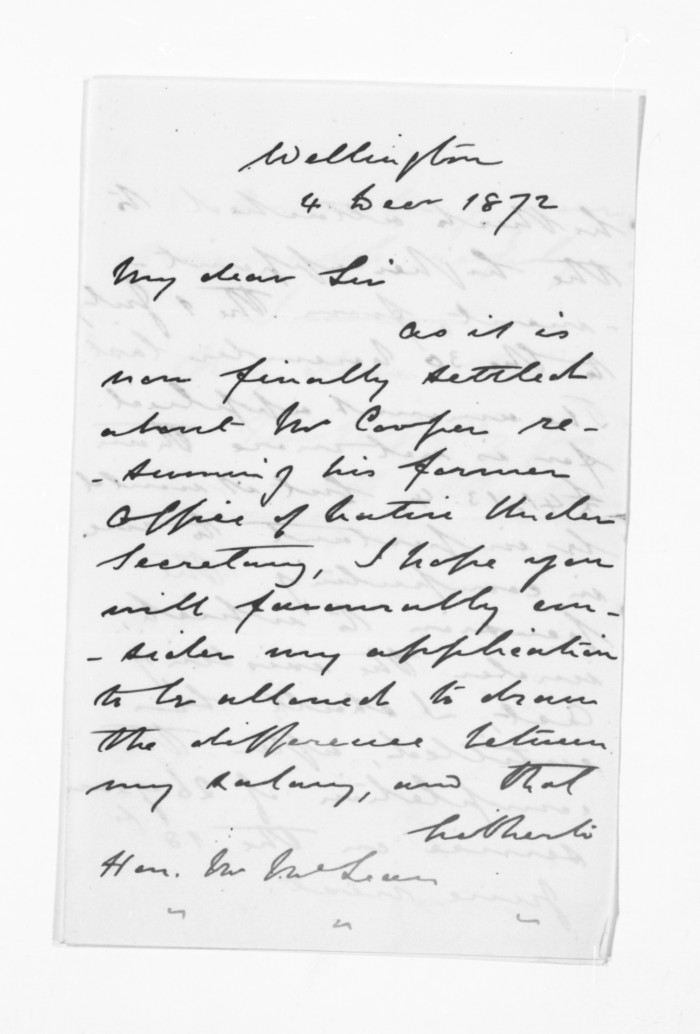 Wellington
4 Decr 1872
My dear Sir
as it is
now finally settled
about Mr Cooper re-
-suming his former
Office of Native Under
Secretary, I hope you
will favourably con-
-sider my application
to be allowed to draw
the difference between
my salary, and that
hitherto
Hon. Mr McLean